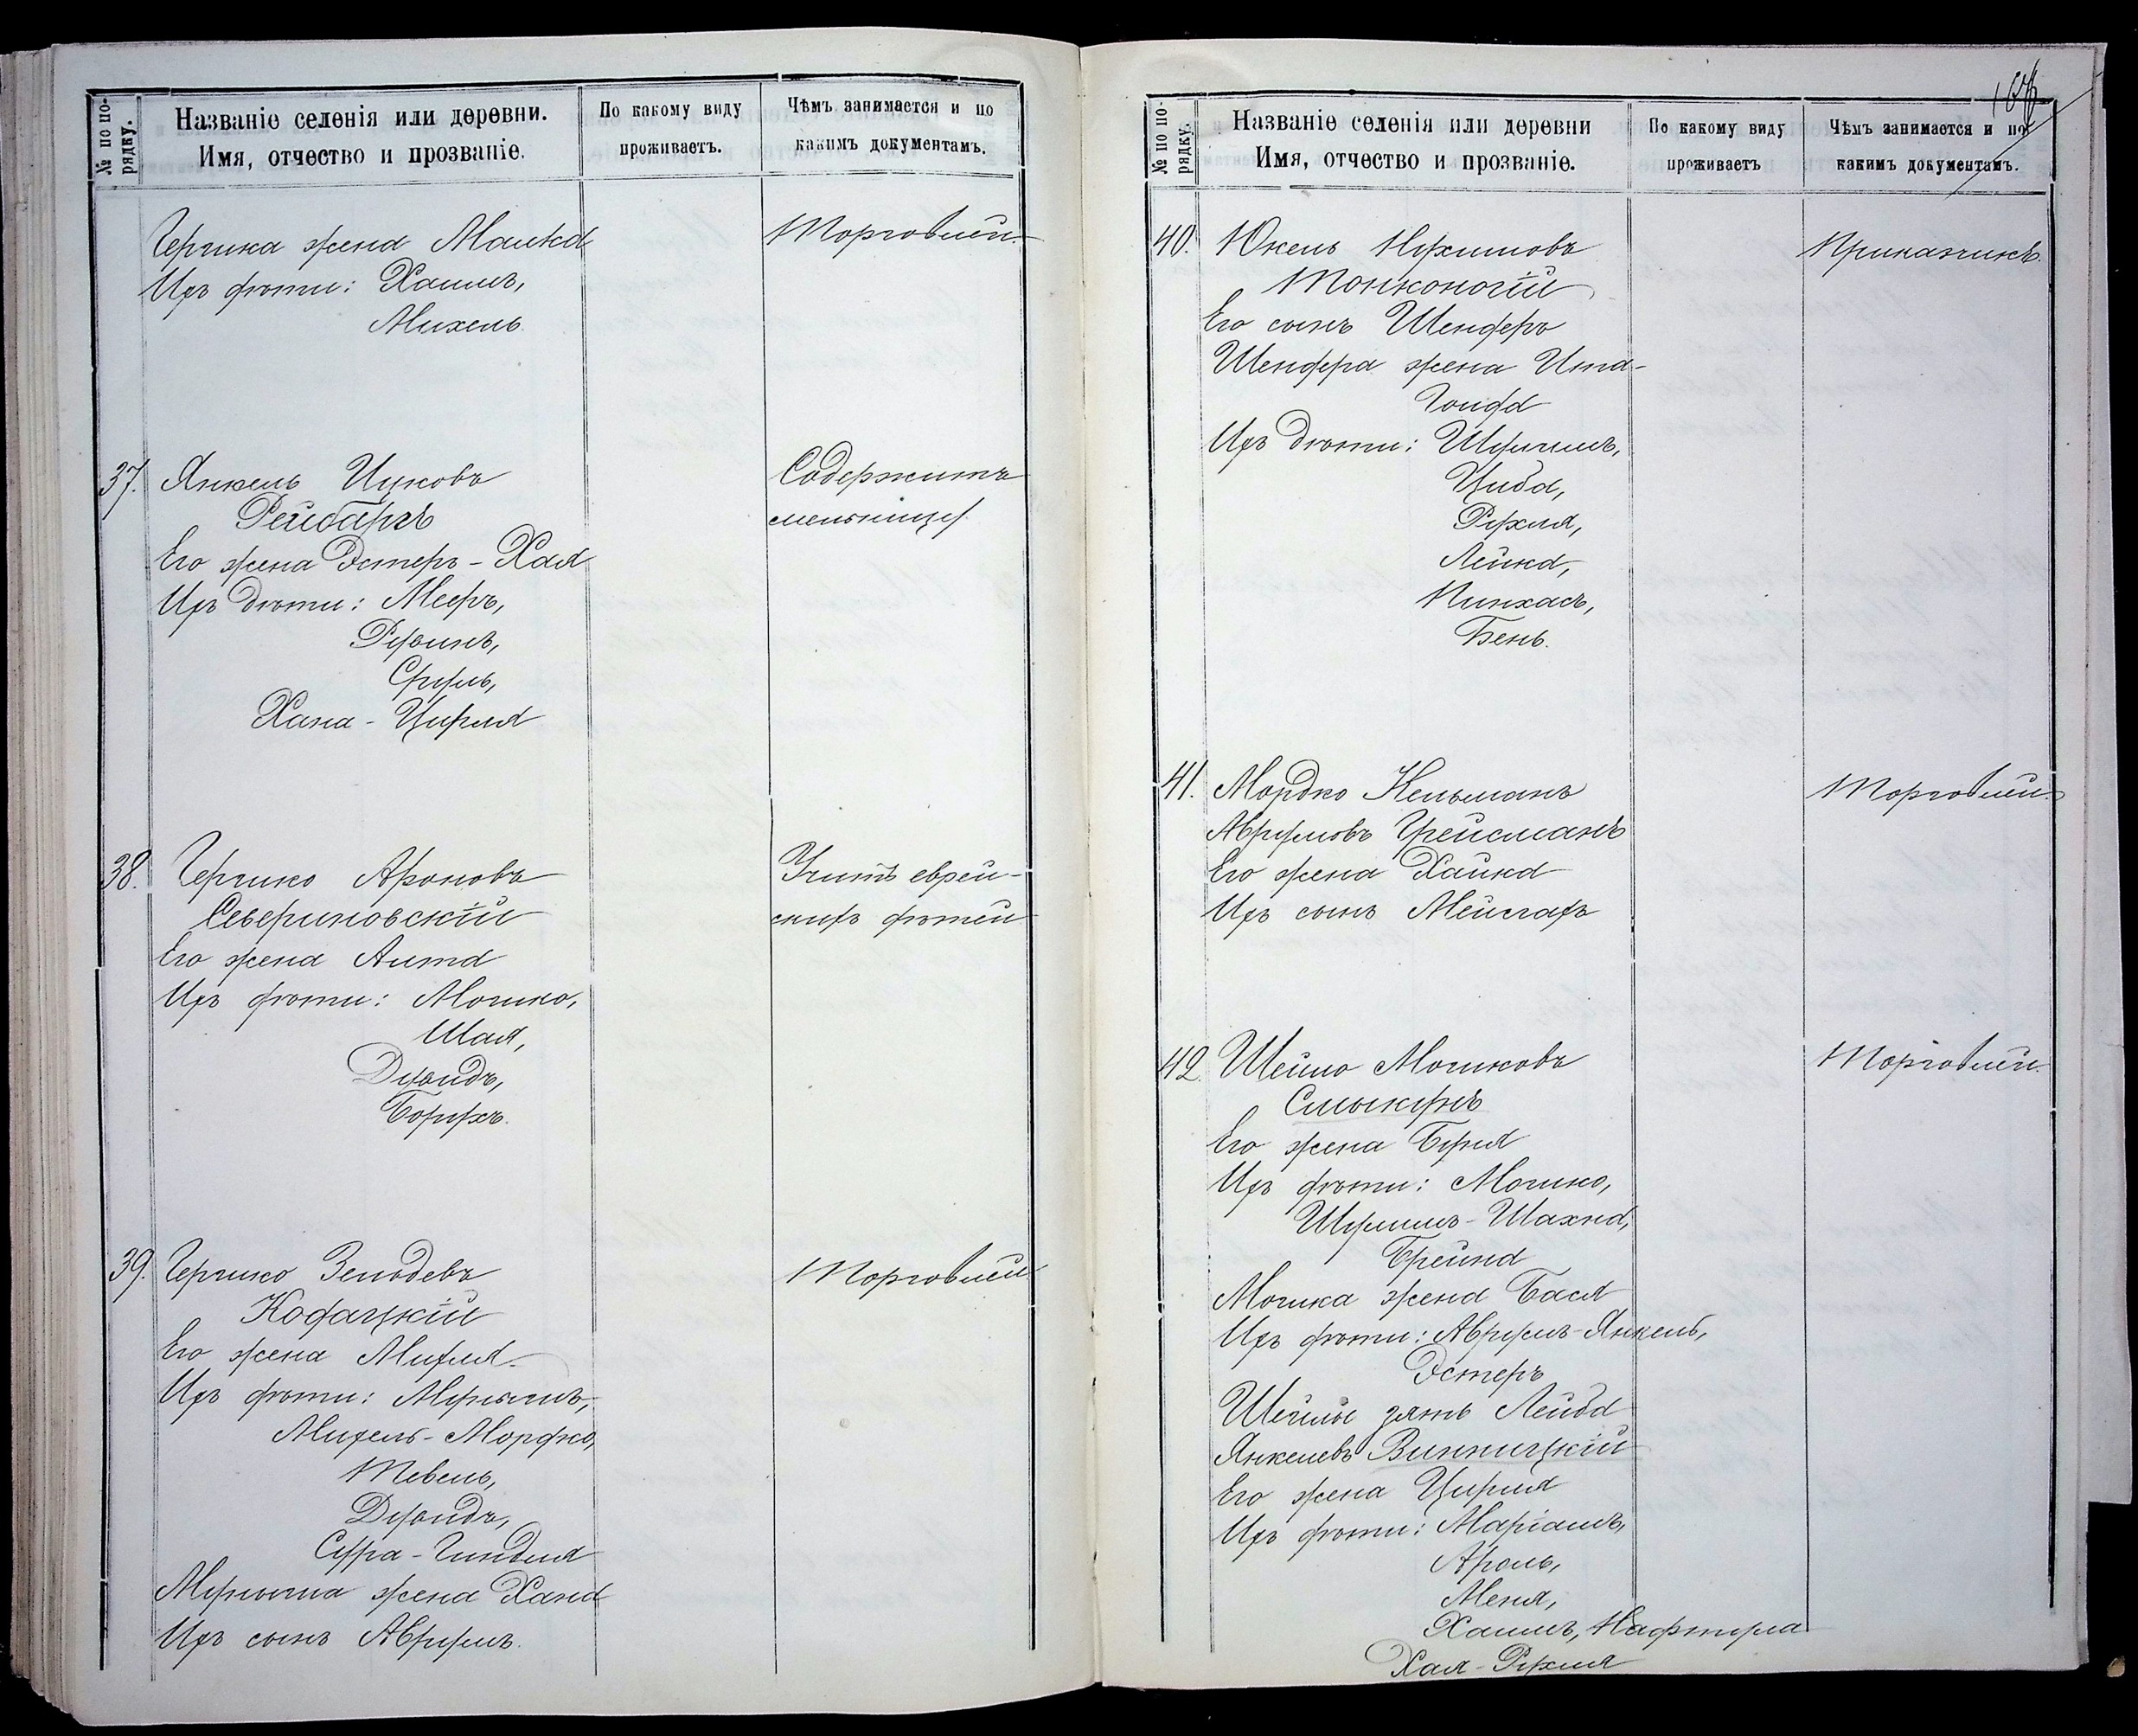 № по порядку.
Названіе селенія или деревни.
Имя, отчество и прозваніе.
По какому виду
проживаетъ.
Чѣмъ занимается и по
какимъ документамъ.
Гершка жена Малка
Ихъ дѣти: Хаимъ,
Михель.
Торговлей.
37. Янкель Ицковъ
Рейбаргъ
Его жена Эстеръ-Хая
Ихъ дѣти: Мееръ,
Рувинъ,
Сруль,
Хана-Цирля
Содержитъ
мельницу.
38. Гершко Ароновъ
Севериновскій
Его жена Аита
Ихъ дѣти: Мошко,
Шая,
Дувидъ,
Борухъ.
Учитъ еврей-
скихъ дѣтей
39. Гершко Зельдевъ
Кодацкій
Его жена Михля
Ихъ дѣти:
Михель-Мордко,
Тевель,
Дувидъ,
Сура-Гиндля
жена Хана
Ихъ сынъ Аврумъ.
Торговлей.
№ по порядку.
Названіе селенія или деревни
Имя, отчество и прозваніе.
По какому виду
проживаетъ
Чѣмъ занимается и по
какимъ документамъ.
40. Юкель Нухимовъ
Тонконогій
Его сынъ Шендеръ
Шендера жена Ита-
Гольда
Ихъ дѣти:
Циба,
Рухля,
Лейка,
Пинхасъ,
Бень.
Приказчикъ.
41. Мордко Кельманъ
Аврумовъ Грейсманъ
Его жена Хайка
Ихъ сынъ
Торговлей.
42. Шейло Мошковъ
Его жена
Ихъ дѣти: Мошко,
Шулимъ-Шахна,
Брейна
Мошка жена Бася
Ихъ дѣти: Аврумъ-Янкель,
Эстеръ
зять Лейба
Янкелевъ Винницкій
Его жена Цирля
Ихъ дѣти: Маріамъ,
Арель,
Меня,
Хаимъ, Нафтула
Хая-Рухля
Торговлей.